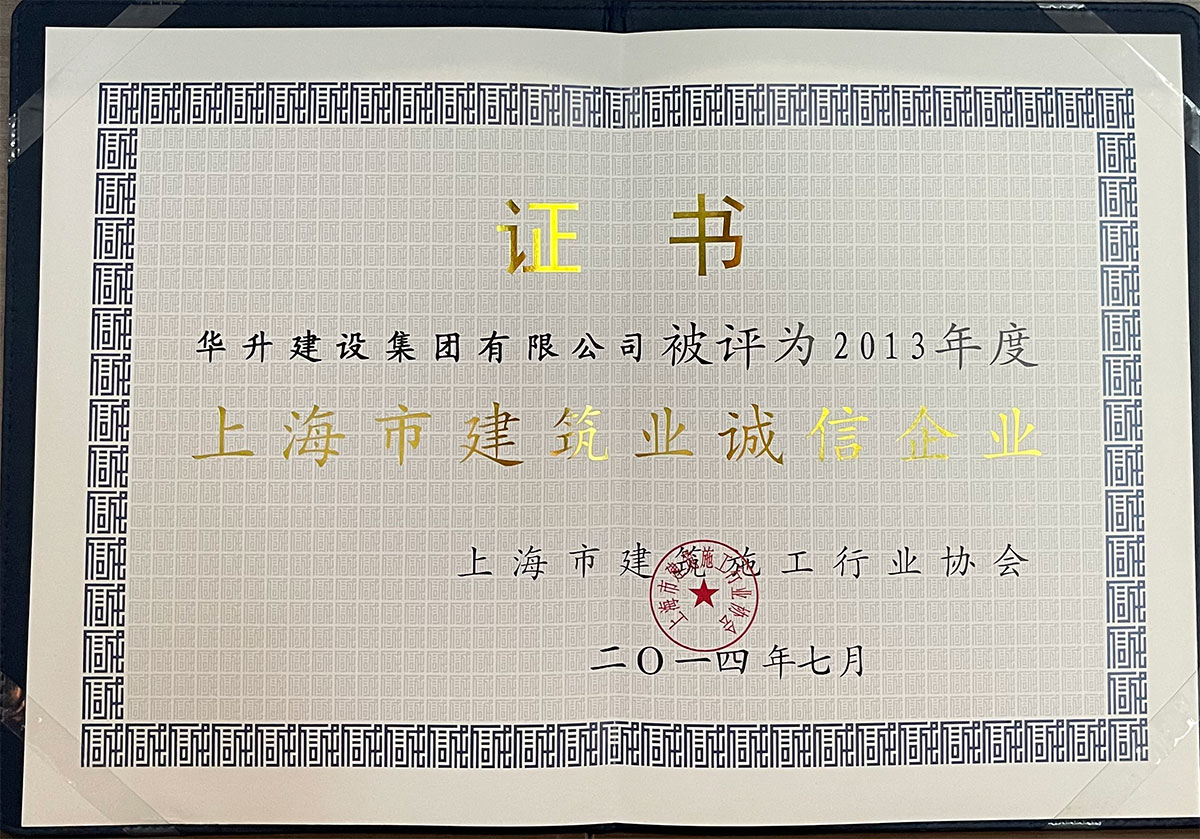 证 书
华升建设集团有限公司被评为2013年度
上海市建筑业诚信企业
上海市建筑施工行业协会
上海市建筑施工行业协会
二〇一四年七月